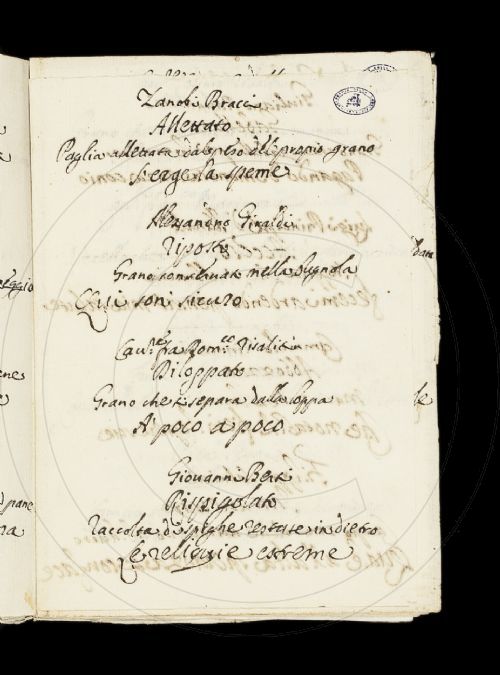 Zanobi Bracci
Allettato
Paglia allettata dal peso del propio grano
S'erge la speme
Alessandro Giraldi
Riposto
Grano conservato nella bugnola
Qui son sicuro
Cav.re fra Dom.co
Diloppato
Grano che si separa dalla loppa
A poco a poco
Giovanni Berti
Rispigolato
Raccolta di spighe restate in dietro
Le reliquie estreme